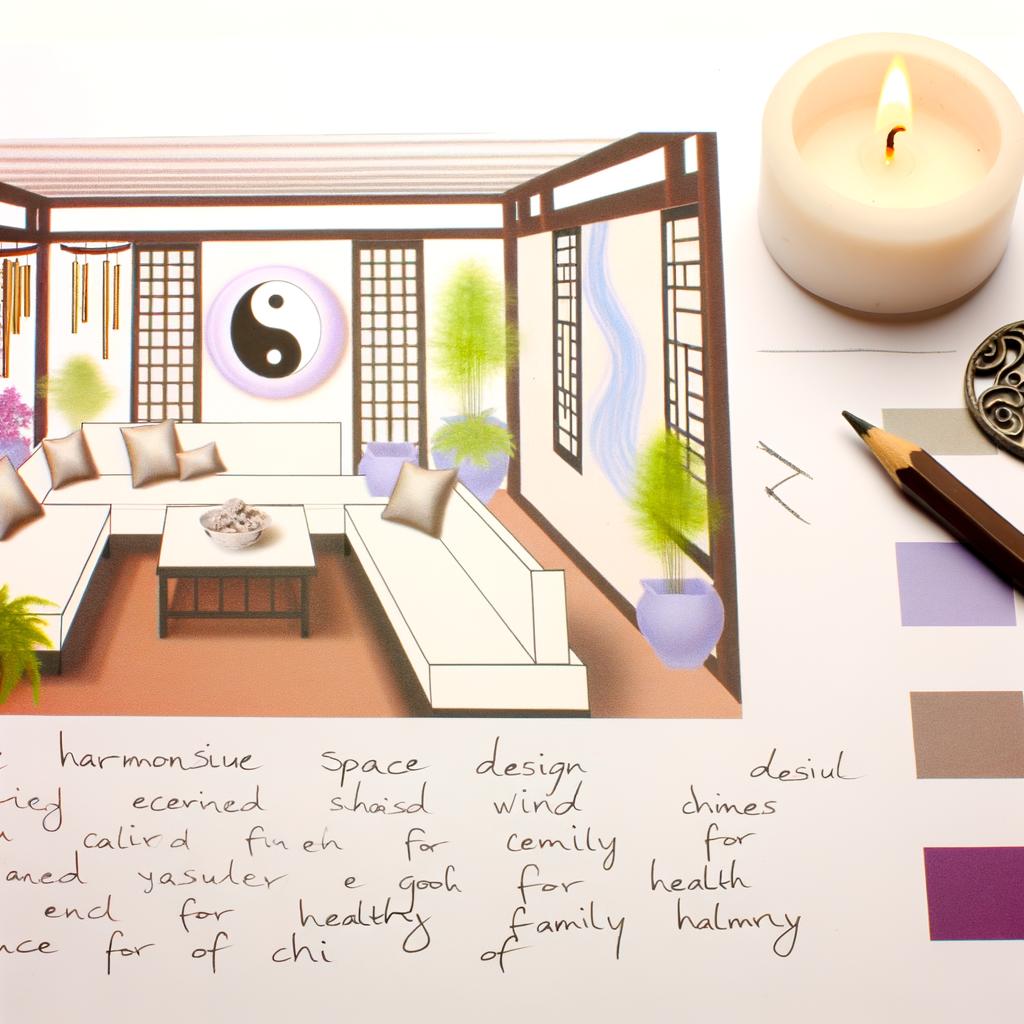 harmonsiue space design desiul
ecerined shaisd wind chimes
for cemily for
yasuler e gooh for health
end for healthy family halmny
for of chi of